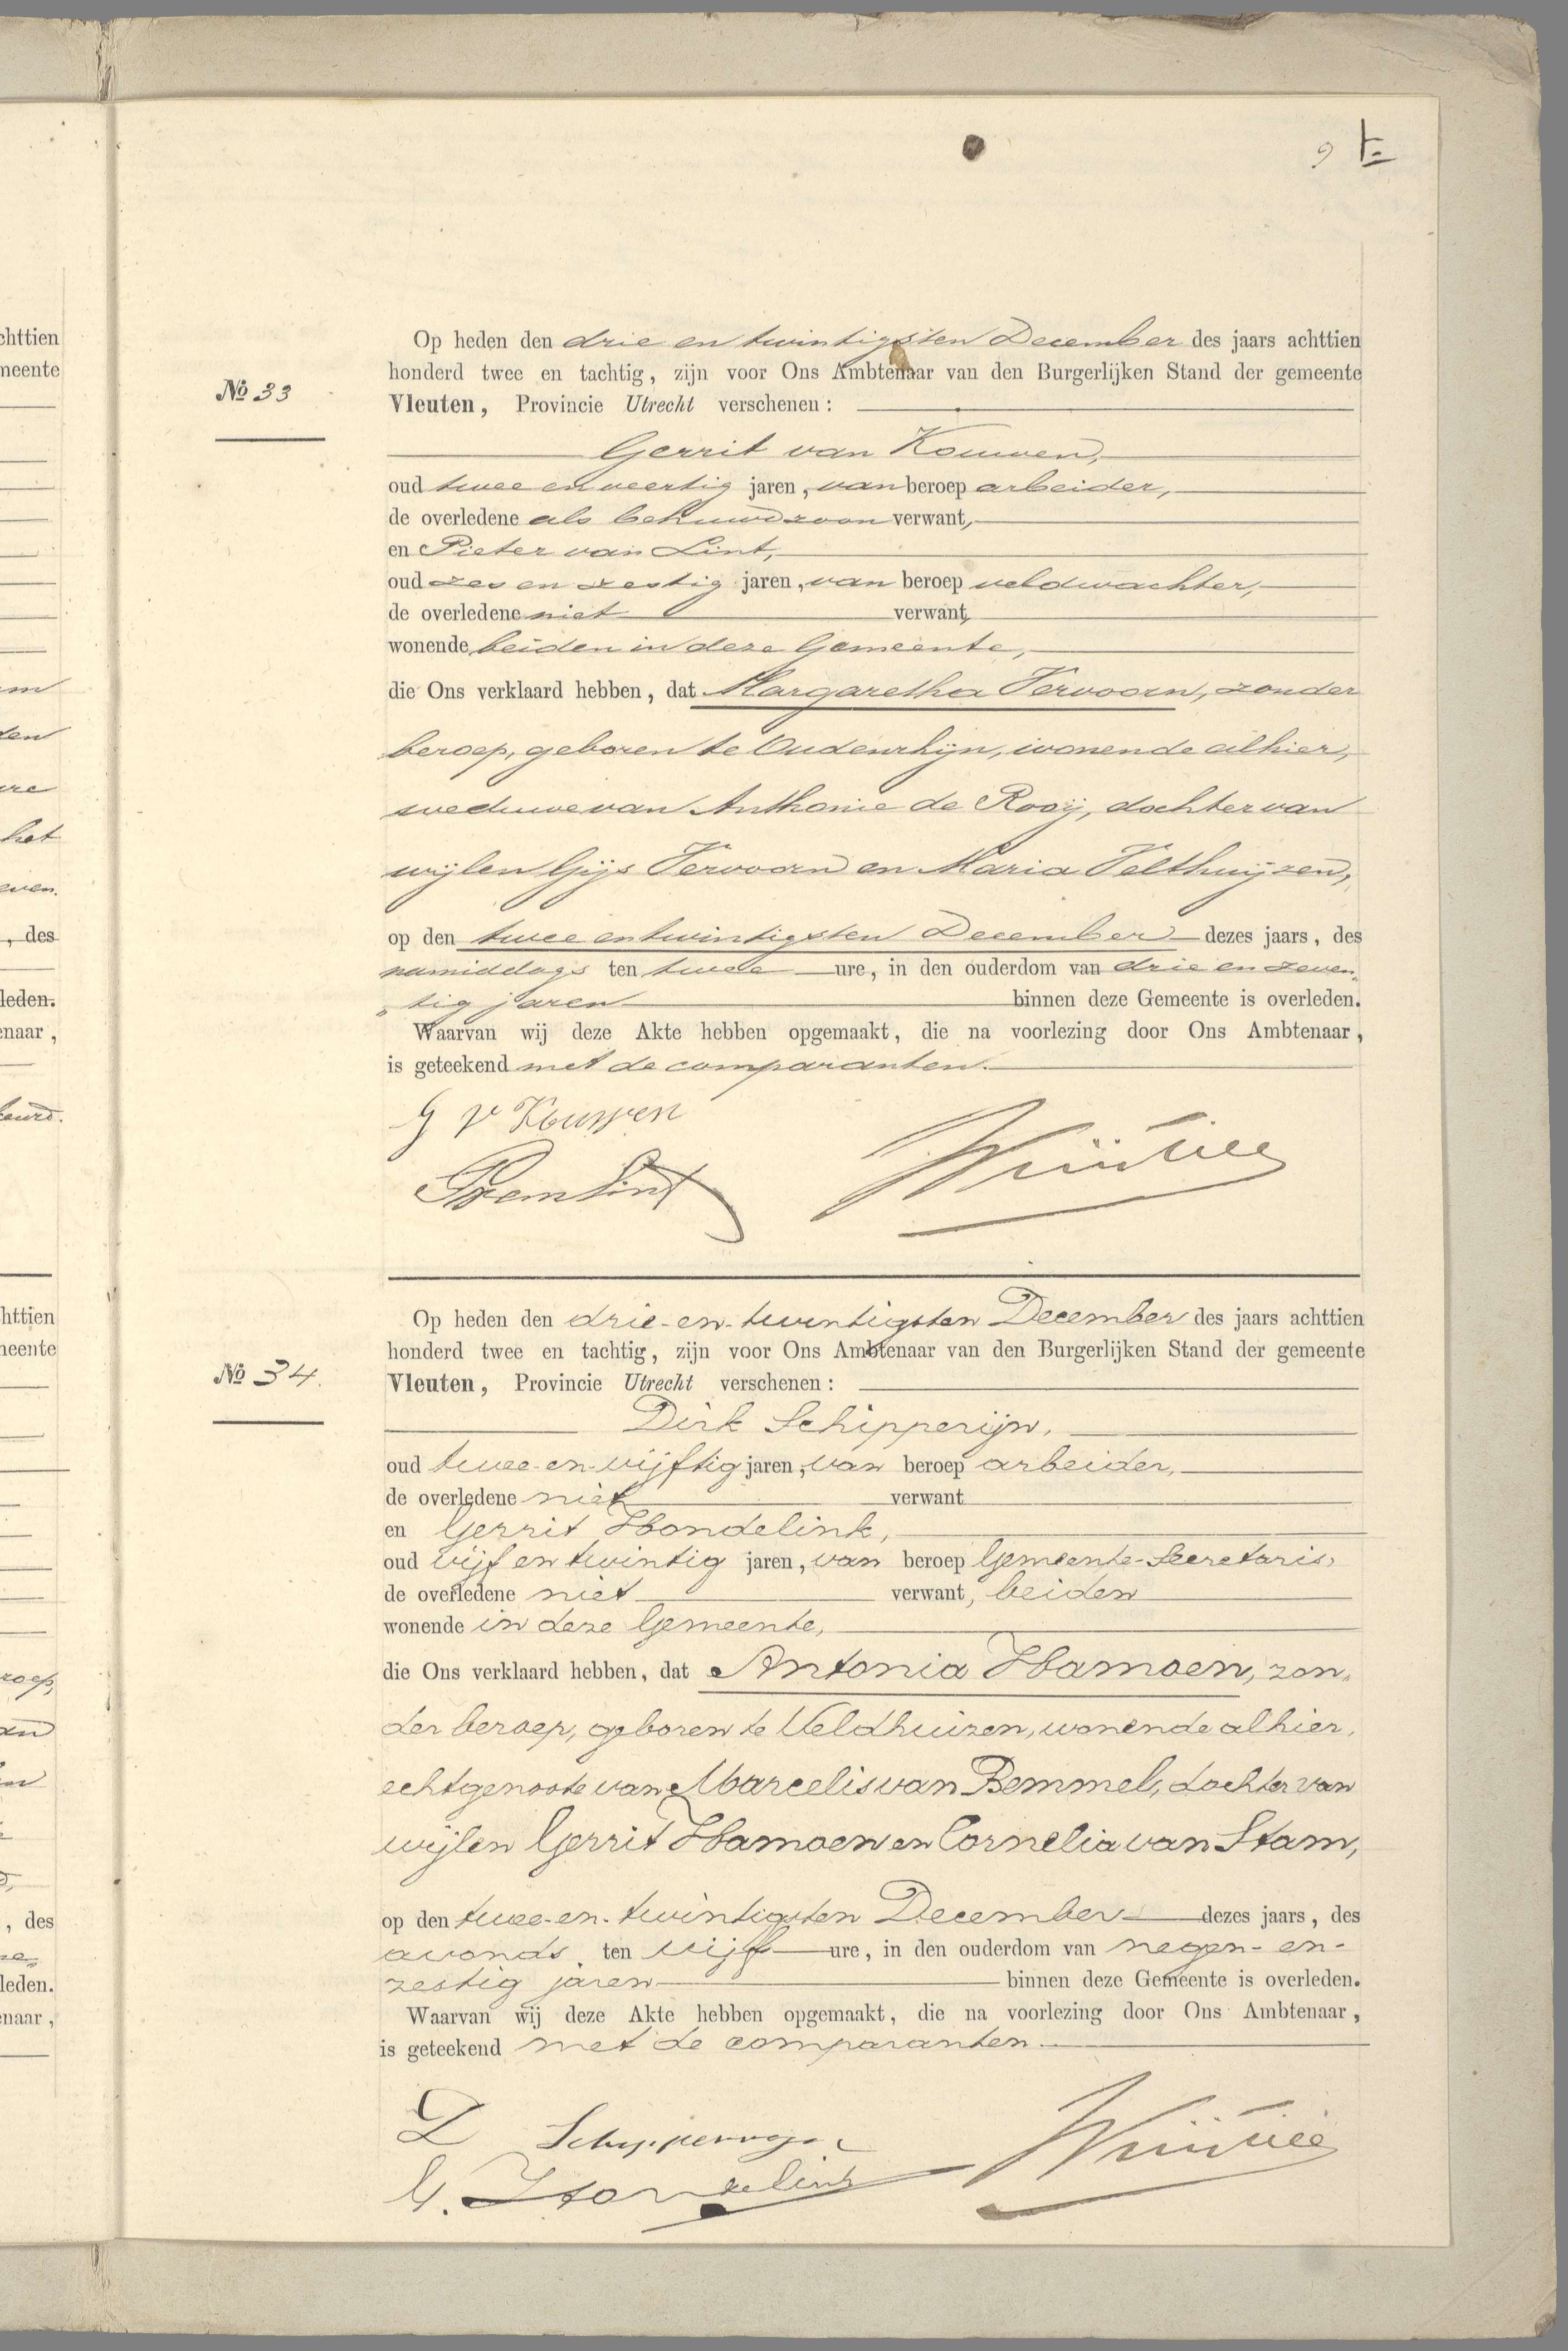 9
chttien
meente
m
den
re
het
even.
, des
leden.
enaar ,
keurd.
httien
neente
roep,
en
, des
leden.
enaar ,
№ 33
Op heden den drie en twintigsten December des jaars achttien
honderd twee en tachtig, zijn voor Ons Ambtenaar van den Burgerlijken Stand der gemeente
Vleuten, Provincie Utrecht verschenen:
Gerrit van Kouwen,
oud twee en veertig jaren, van beroep arbeider,
de overledene als behuwdzoon verwant,
en Pieter van Lint,
oud zes en zestig jaren, van beroep veldwachter,
de overledene niet verwant,
wonende beiden in deze Gemeente,
die Ons verklaard hebben, dat Margaretha Vervoorn, zonder
beroep, geboren te Oudenrhijn, wonende alhier,
weduwe van Anthonie de Rooij, dochter van
wijlen Gijs Vervoorn en Maria Velthuijzen,
op den twee en twintigsten December dezes jaars, des
namiddags ten twee ure, in den ouderdom van drie en zeven„
„tig jaren binnen deze Gemeente is overleden.
Waarvan wij deze Akte hebben opgemaakt, die na voorlezing door Ons Ambtenaar,
is geteekend met de comparanten.
G v Kouwen
№ 34.
Op heden den drie-en-twintigsten December des jaars achttien
honderd twee en tachtig, zijn voor Ons Ambtenaar van den Burgerlijken Stand der gemeente
Vleuten, Provincie Utrecht verschenen:
Dirk Schipperijn,
oud twee-en-vijftig jaren, van beroep arbeider,
de overledene niet verwant
en Gerrit Hondelink,
oud vijf en twintig jaren, van beroep Gemeente-Secretaris,
de overledene niet verwant, beiden
wonende in deze Gemeente,
die Ons verklaard hebben, dat Antonia Hamoen, zon„
der beroep, geboren te Veldhuizen, wonende alhier,
echtgenoote van Marcelis van Bemmel, dochter van
wijlen Gerrit Hamoen en Cornelia van Stam,
op den twee-en-twintigsten December dezes jaars, des
avonds ten vijf ure, in den ouderdom van negen-en-
zestig jaren binnen deze Gemeente is overleden.
Waarvan wij deze Akte hebben opgemaakt, die na voorlezing door Ons Ambtenaar,
is geteekend met de comparanten.
D Schipperijn
G. Hondelink